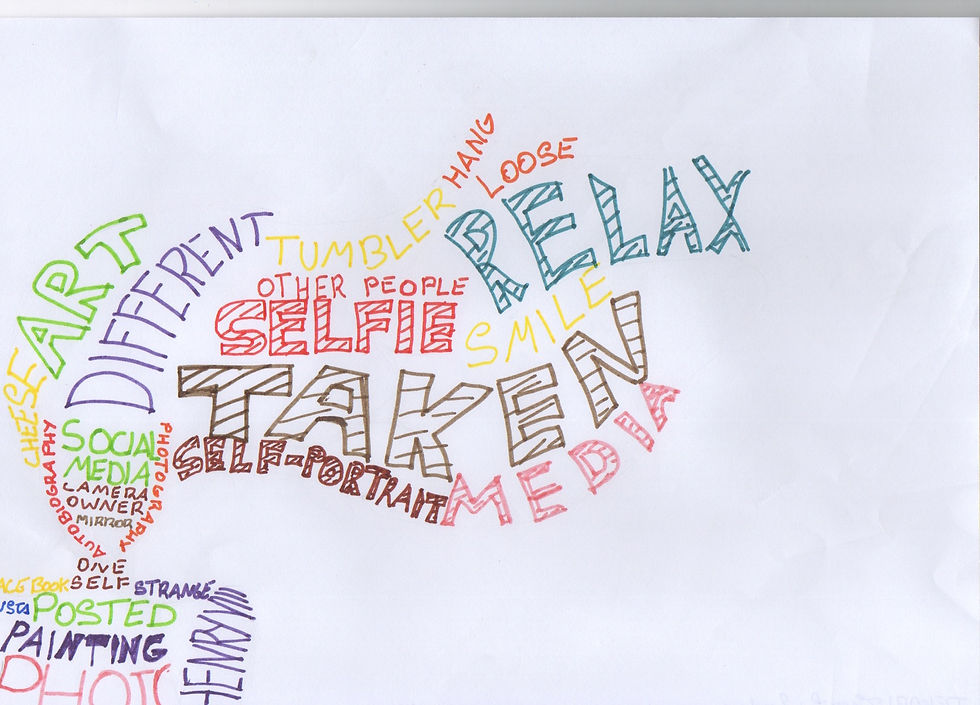 HANG
LOOSE
RELAX
TUMBLER
ART
DIFFERENT
OTHER PEOPLE
SELFIE
SMILE
TAKEN
CHEESE
SELF-PORTRAIT
MEDIA
SOCIAL
MEDIA
CAMERA
OWNER
MIRROR
PHOTOGRAPHY
AUTOBIOGRAPHY
ONE
SELF
ACEBOOK
STRANGE
NSTA
POSTED
HENRY VIII
PAINTING
PHOTO